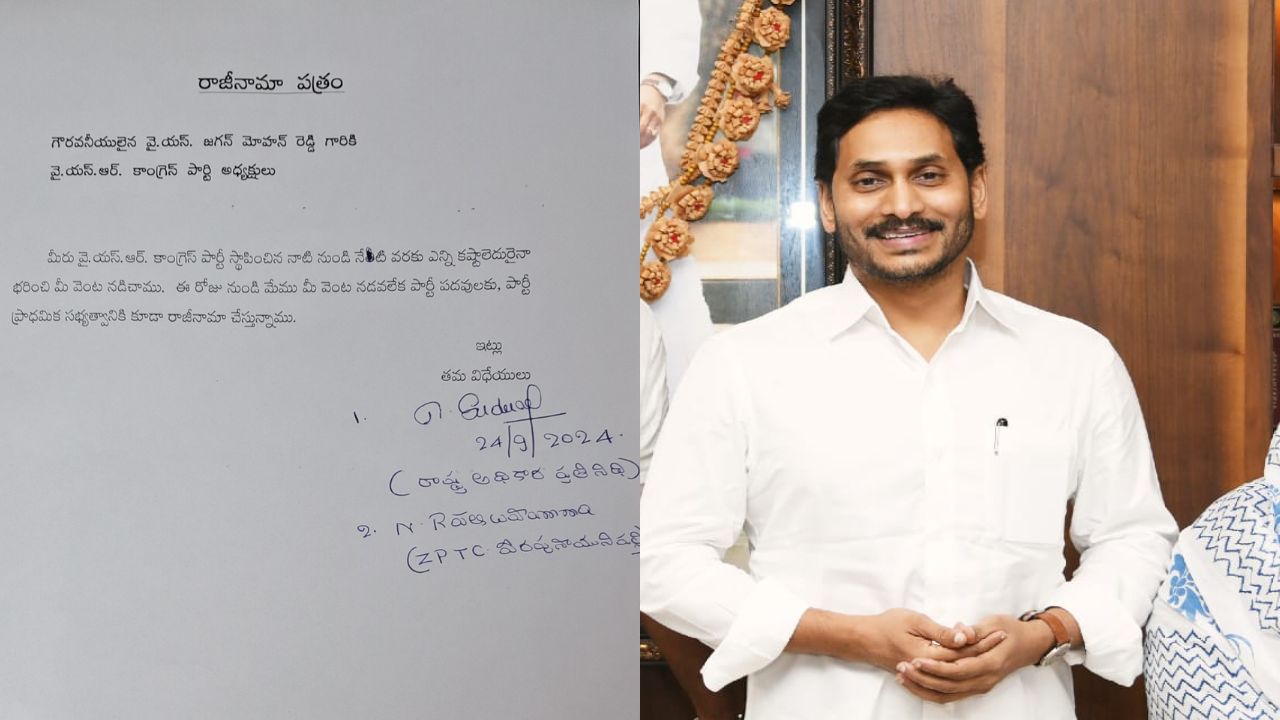 రాజీనామా పత్రం
గౌరవనీయులైన వై.యస్. జగన్ మోహన్ రెడ్డి గారికి
వై.యస్.ఆర్. కాంగ్రెస్ పార్టీ అధ్యక్షులు
మీరు వై.యస్.ఆర్. కాంగ్రెస్ పార్టీ స్థాపించిన నాటి నుండి నేటి వరకు ఎన్ని కష్టాలెదురైనా
భరించి మీ వెంట నడిచాము. ఈ రోజు నుండి మేము మీ వెంట నడవలేక పార్టీ పదవులకు, పార్టీ
ప్రాధమిక సభ్యత్వానికి కూడా రాజీనామా చేస్తున్నాము.
ఇట్లు
తమ విధేయులు
1.
24/9/2024.
(రాష్ట్ర అధికార ప్రతినిధి)
2. N.
(ZPTC.